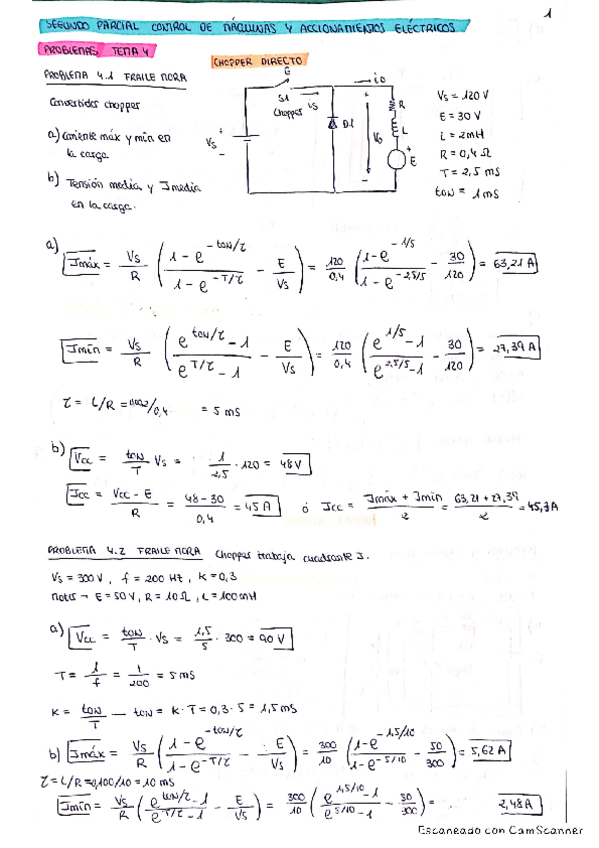 1
SEGUNDO PARCIAL CONTROL DE MÁQUINAS Y ACCIONAMIENTOS ELÉCTRICOS
PROBLEMAS TEMA 4
CHOPPER DIRECTO
PROBLEMA 4.1 FRAILE MORA
Convertidor chopper
a) Corriente máx y mín en
la carga.
b) Tensión media y Imedia
en la carga.
G
S1
is
Chopper
Vs
+
-
D1
io
+
Vo
-
R
L
+
E
Vs = 120 V
E = 30 V
L = 2mH
R = 0,4 Ω
T = 2,5 ms
ton = 1ms
a) Imáx = Vs/R ( (1 - e^-ton/τ)/(1 - e^-T/τ) - E/Vs ) = 120/0.4 ( (1 - e^-1/5)/(1 - e^-2,5/5) - 30/120 ) = 63,21 A
Imín = Vs/R ( (e^ton/τ - 1)/(e^T/τ - 1) - E/Vs ) = 120/0.4 ( (e^1/5 - 1)/(e^2,5/5 - 1) - 30/120 ) = 27,39 A
τ = L/R = 0,002/0,4 = 5 ms
b) Vcc = ton/T Vs = 1/2,5 · 120 = 48 V
Icc = (Vcc - E)/R = (48 - 30)/0,4 = 45 A ó Icc = (Imáx + Imín)/2 = (63,21 + 27,39)/2 = 45,3A
PROBLEMA 4.2 FRAILE MORA Chopper trabaja cuadrante I.
Vs = 300 V, f = 200 Hz, K = 0,3
motor → E = 50 V, R = 10 Ω, L = 100mH
a) Vcc = ton/T · Vs = 1,5/5 · 300 = 90 V
T = 1/f = 1/200 = 5 ms
K = ton/T — ton = K · T = 0,3 · 5 = 1,5 ms
b) Imáx = Vs/R ( (1 - e^-ton/τ)/(1 - e^-T/τ) - E/Vs ) = 300/10 ( (1 - e^-1,5/10)/(1 - e^-5/10) - 50/300 ) = 5,62 A
τ = L/R = 0,100/10 = 10 ms
Imín = Vs/R ( (e^ton/τ - 1)/(e^T/τ - 1) - E/Vs ) = 300/10 ( (e^1,5/10 - 1)/(e^5/10 - 1) - 50/300 ) = 2,48 A
Escaneado con CamScanner